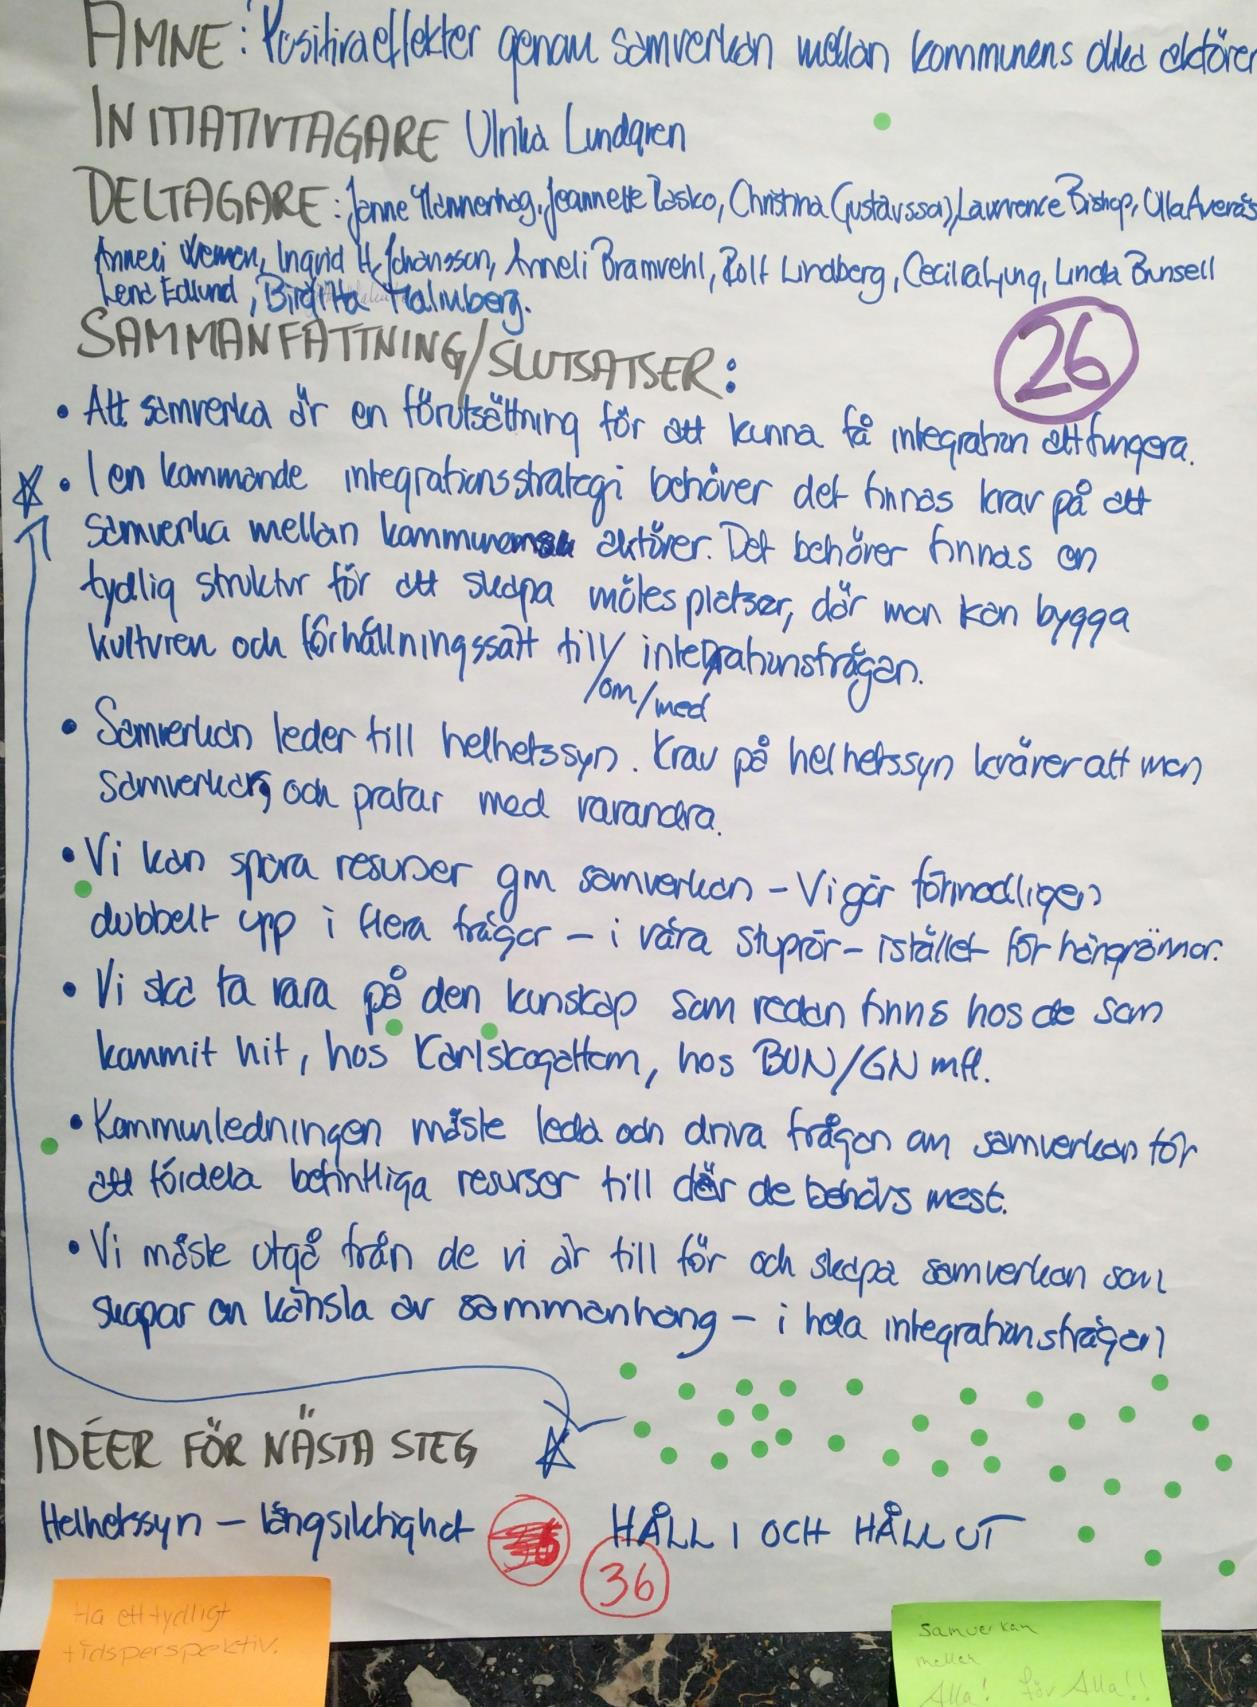 ÄMNE: Positiva effekter genom samverkan mellan kommunens olika aktörer
INITIATIVTAGARE Ulrika Lundgren
DELTAGARE: Janne Wannerhag, Jeannette Rasko, Christina Gustavsson, Lawrence Bishop, Ulla Averås
Anneli Bramvehl, Ingrid H Johansson, Rolf Lindberg, Cecilia Ljung, Linda Bunsell
Lena Edlund, Birgitta Malmberg.
SAMMANFATTNING/SLUTSATSER:
26
• Att samverka är en förutsättning för att kunna få integration att fungera.
• I en kommande integrationsstrategi behöver det finnas krav på att
samverka mellan kommunens aktörer. Det behöver finnas en
tydlig struktur för att skapa mötesplatser, där man kan bygga
kulturen och förhållningssätt till/ integrationsfrågan.
/om/med
• Samverkan leder till helhetssyn. Krav på helhetssyn kräver att man
samverkar, och pratar med varandra.
• Vi kan spara resurser gm samverkan – Vi gör förmodligen
dubbelt upp i flera frågor – i våra stuprör – istället för hängrännor.
• Vi ska ta vara på den kunskap som redan finns hos de som
kommit hit, hos Karlskogahem, hos BUN/GN mfl.
• Kommunledningen måste leda och driva frågan om samverkan för
att fördela befintliga resurser till där de behövs mest.
• Vi måste utgå från de vi är till för och skapa samverkan som
skapar en känsla av sammanhang – i hela integrationsfrågan
IDÉER FÖR NÄSTA STEG
Helhetssyn – långsiktighet 36 HÅLL I OCH HÅLL UT
36
Ha ett tydligt
tidsperspektiv.
samverkan
mellan
Alla! för Alla!!